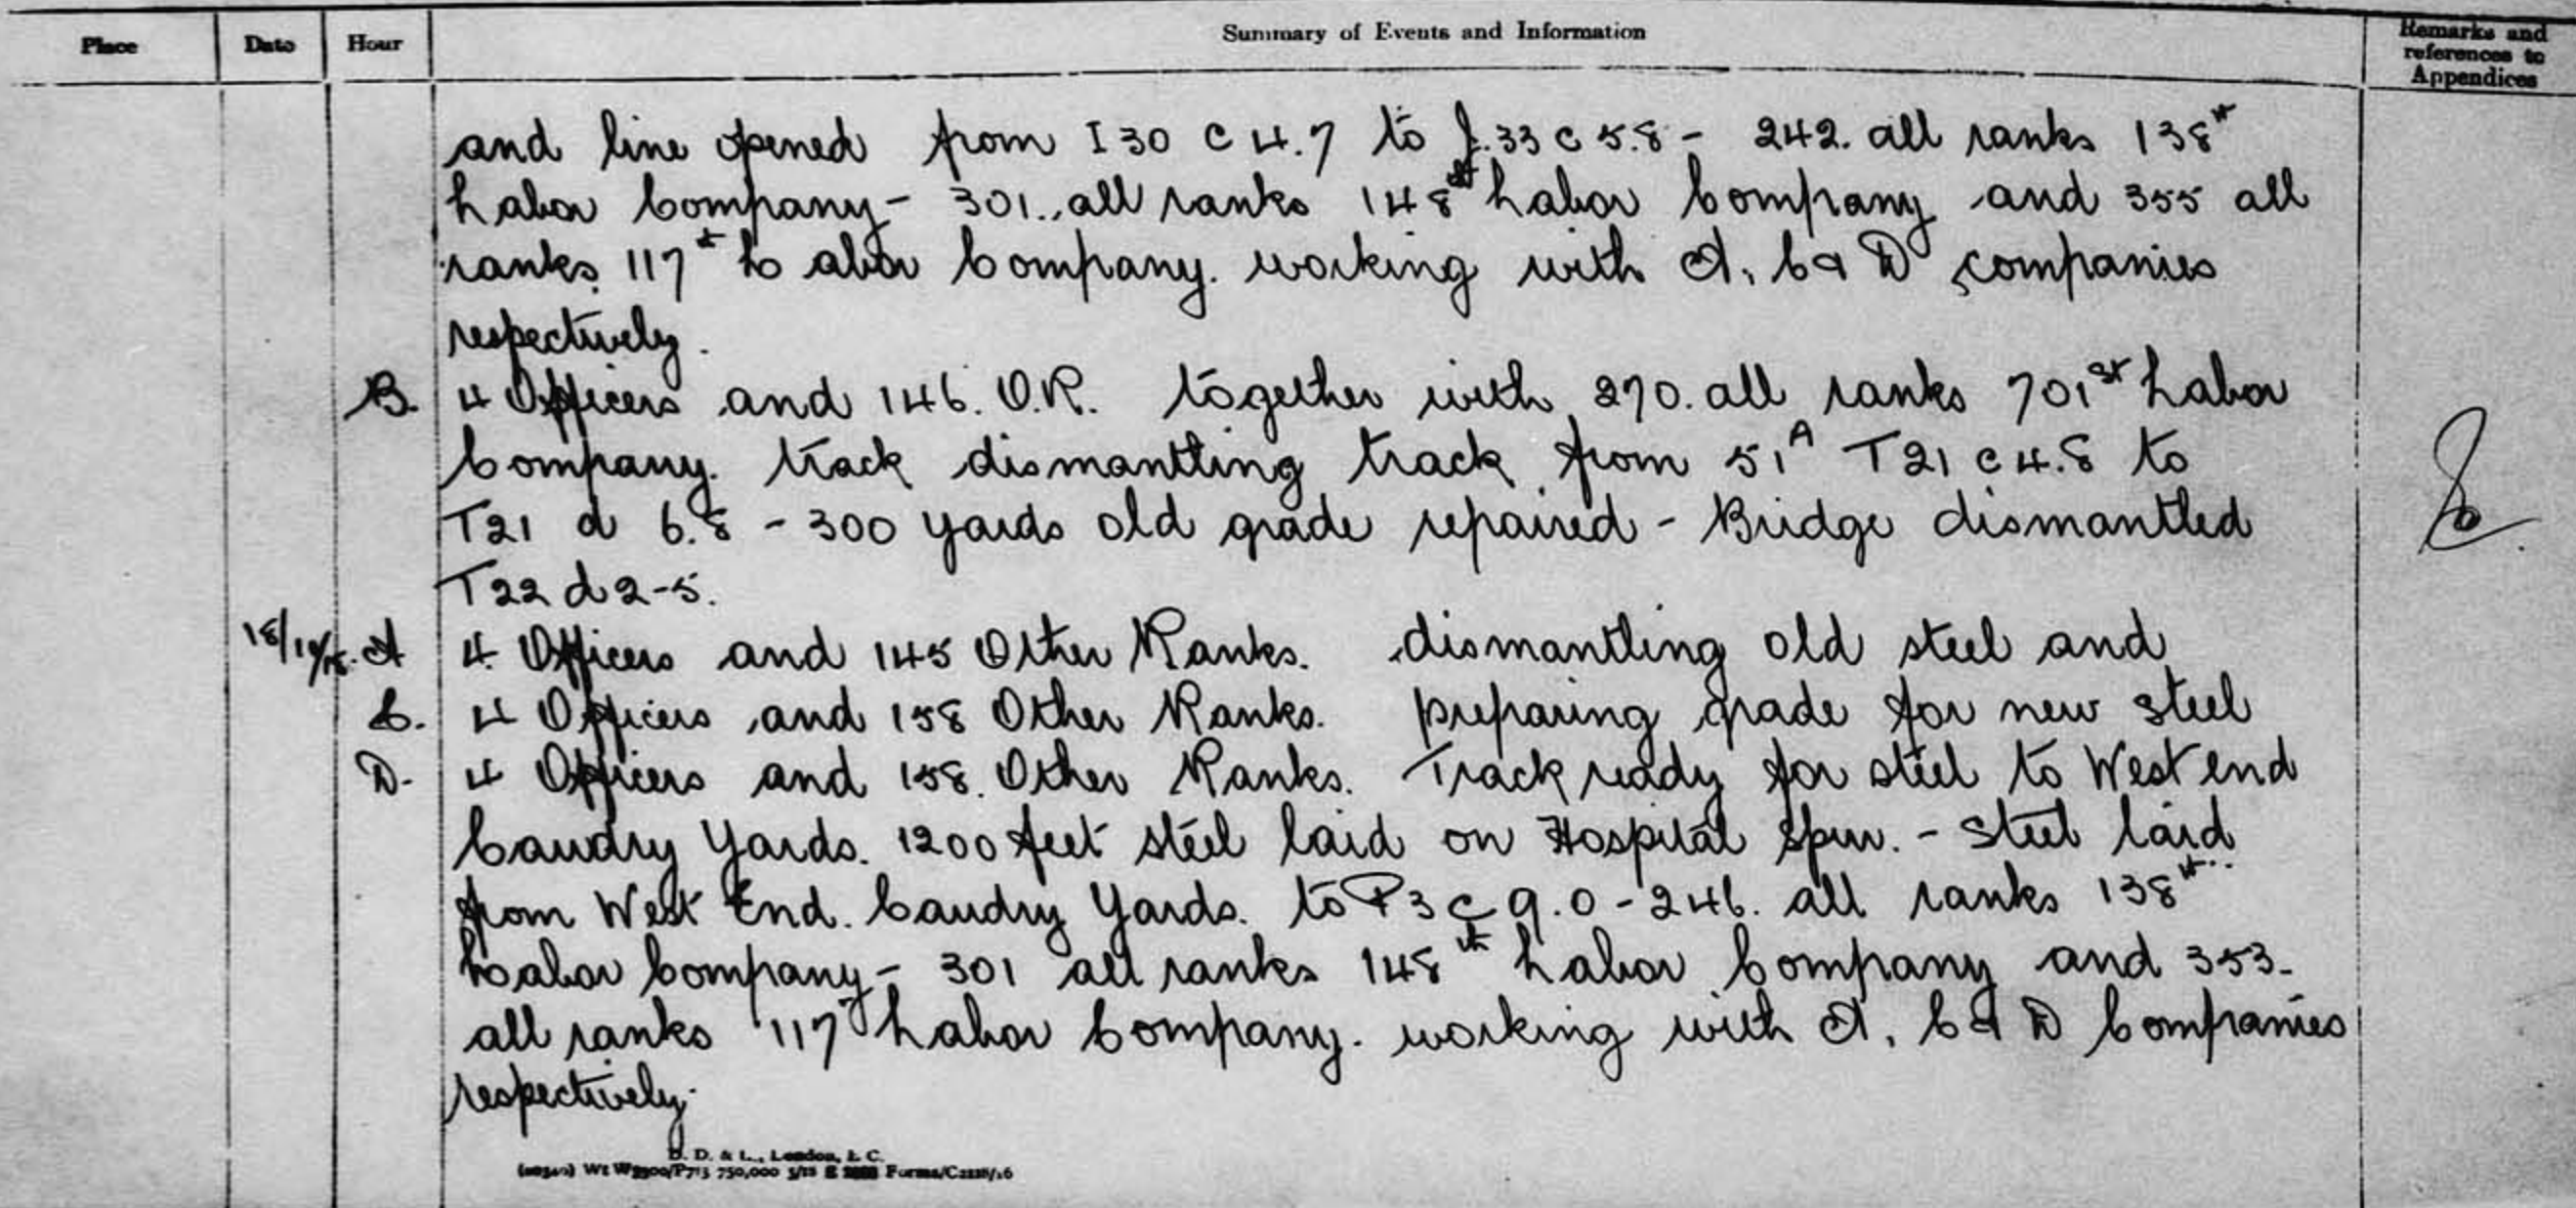 Place Date Hour Summary of Events and Information Remarks and references to Appendices
and line opened from I 30 c 4.7 to J.33 c 5.8 - 242. all ranks 138th
Labor Company - 301., all ranks 148th Labor Company and 355 all
ranks 117th Labor Company. working with A, C & D companies
respectively.
B. 4 Officers and 146. O.R. together with 270. all ranks 701st Labor
Company. track dismantling track from 51A T21 c 4.8 to
T21 d 6.8 - 300 yards old grade repaired - Bridge dismantled
T22 d 2-5.
A 4. Officers and 145 Other Ranks. dismantling old steel and
C. 4 Officers and 158 Other Ranks. preparing grade for new steel
D. 4 Officers and 158. Other Ranks. Track ready for steel to West end
Caudry Yards. 1200 feet steel laid on Hospital Spur. - Steel laid
from West End. Caudry Yards. to P3 c 9.0 - 246. all ranks 138th
Labor Company - 301 all ranks 148th Labor Company and 353-
all ranks 117th Labor Company. working with A, C & D Companies
respectively.
D. D. & L., London, E.C.
750,000